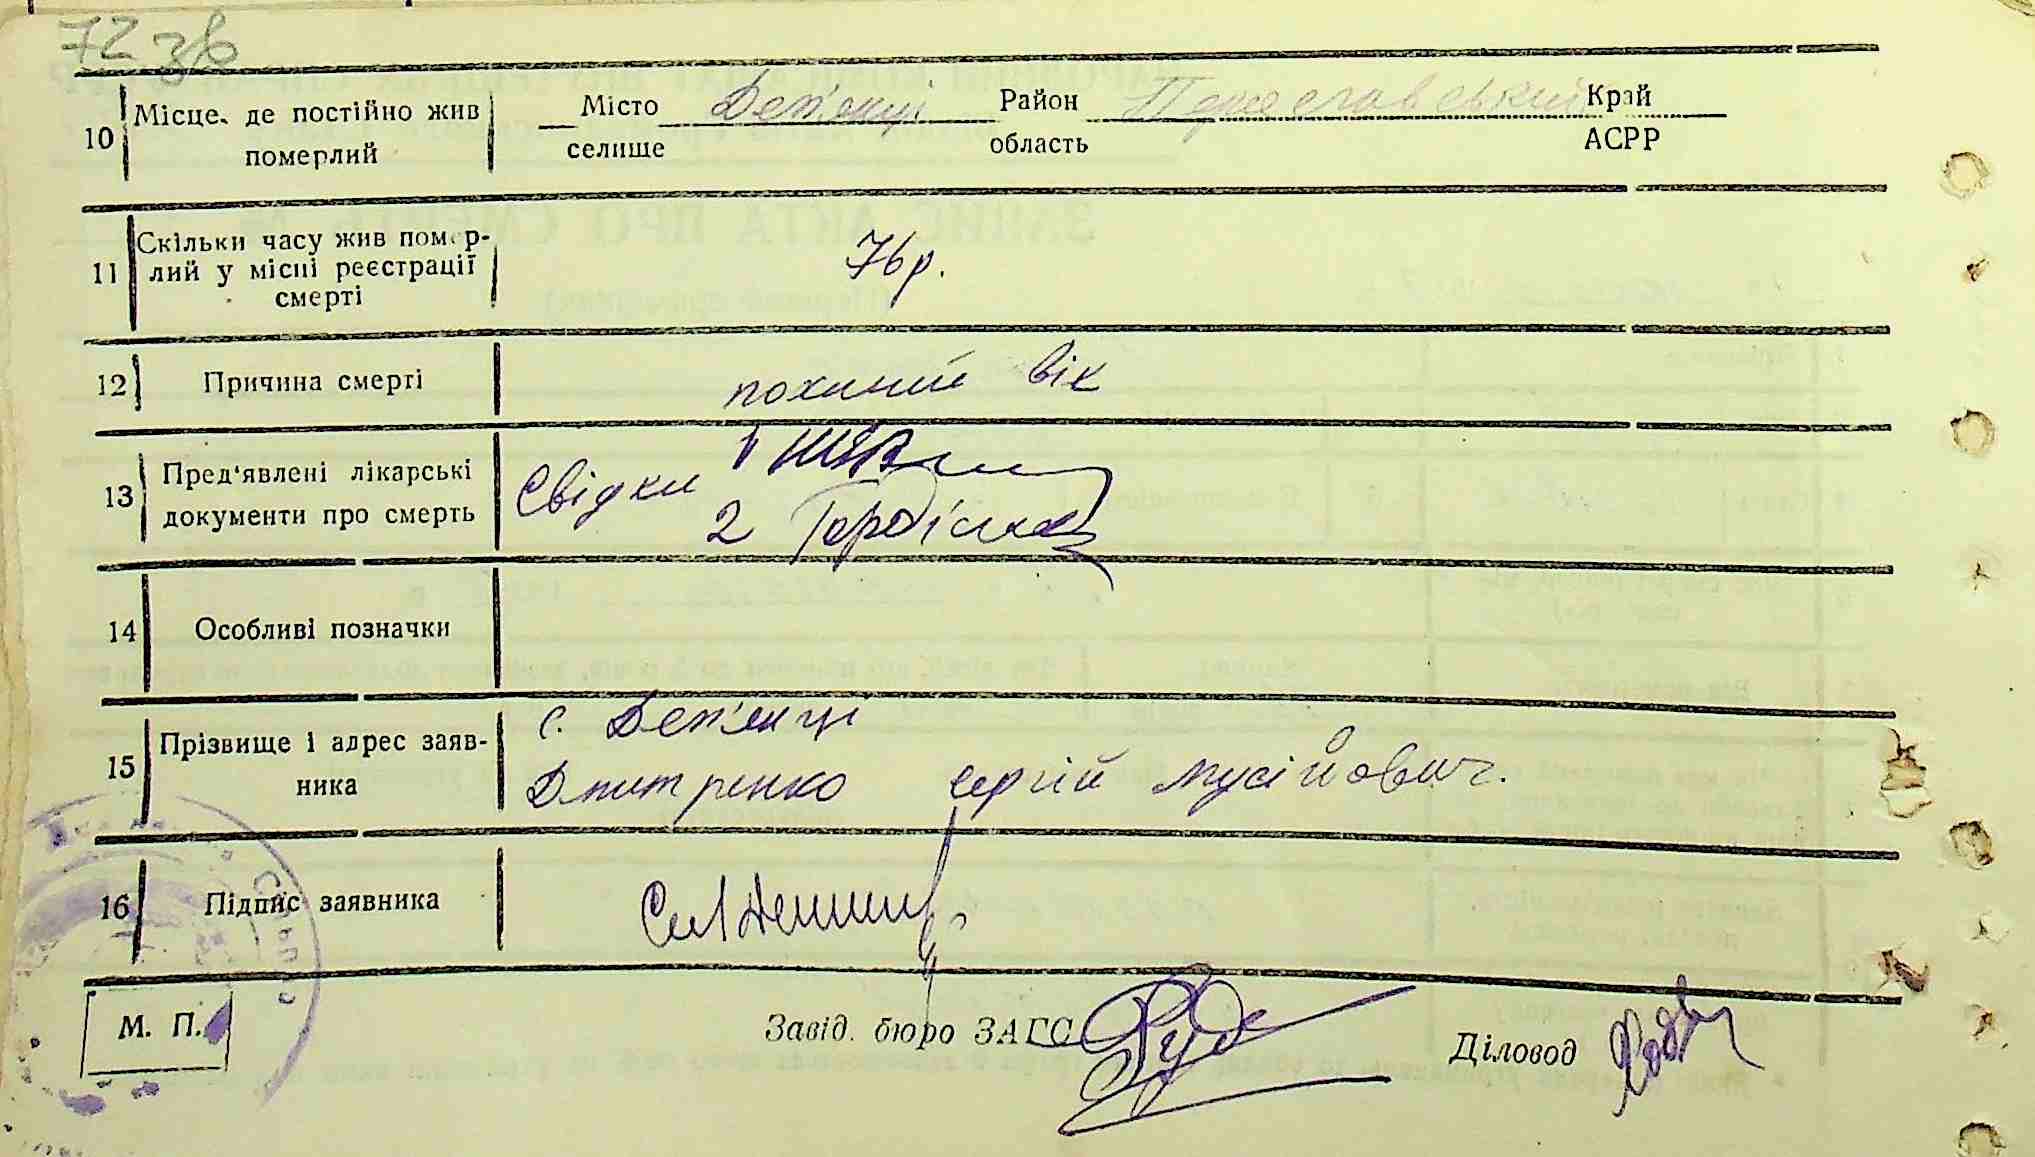 72 зв
10 Місце, де постійно жив Місто Дем'янці Район Переяславський Край
померлий селище область АСРР
11 Скільки часу жив помер-
лий у місці реєстрації 76 р.
смерті
12 Причина смерті похилий вік
13 Пред'явлені лікарські Свідки 1
документи про смерть 2
14 Особливі позначки
15 Прізвище і адрес заяв- с. Дем'янці
ника Дмитренко Сергій Мусійович.
16 Підпис заявника
М. П. Завід. бюро ЗАГС Діловод